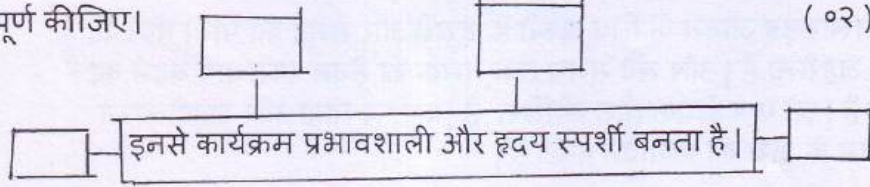 पूर्ण कीजिए। (०२)
इनसे कार्यक्रम प्रभावशाली और हृदय स्पर्शी बनता है।